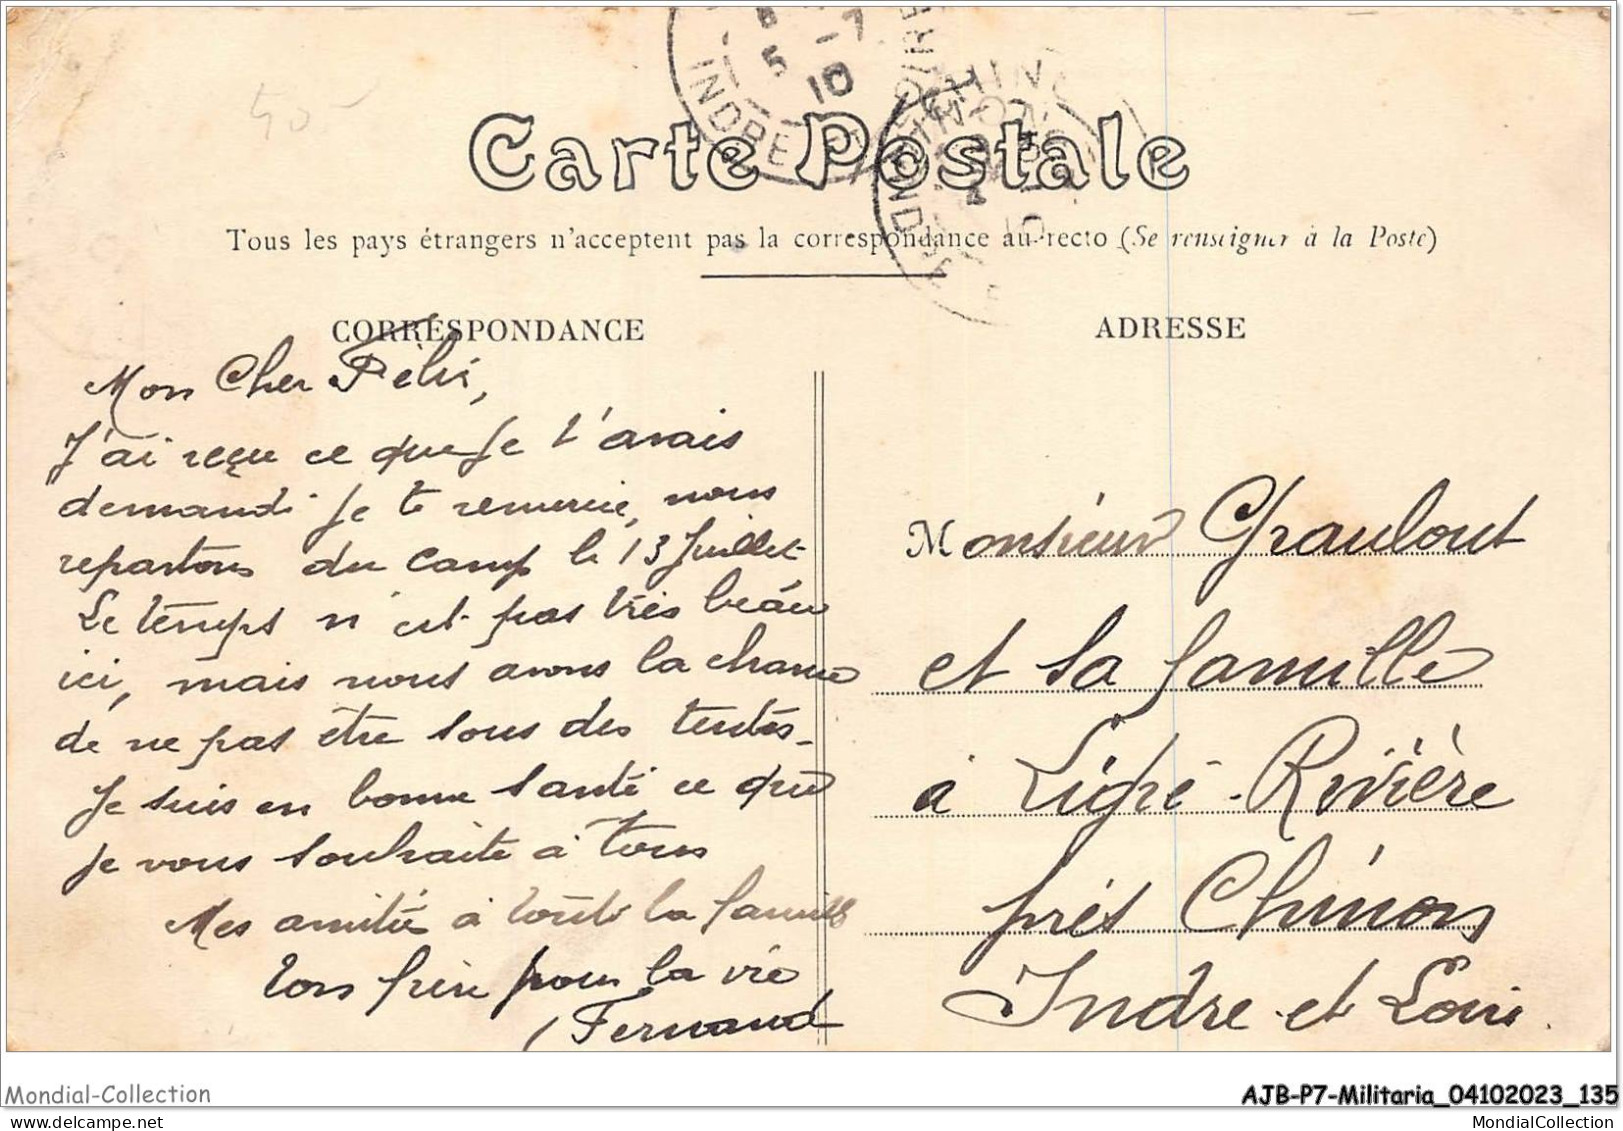 50
5 -7
10
INDRE
CHINON
10
Carte Postale
Tous les pays étrangers n'acceptent pas la correspondance au recto (Se renseigner à la Poste)
CORRESPONDANCE
Mon Cher Félix,
J'ai reçu ce que Je t'avais
demandé je te remercie, nous
repartons du camp le 13 Juillet
Le temps n'est pas très beau
ici, mais nous avons la chance
de ne pas être sous des tentes_
Je suis en bonne santé ce que
je vous souhaite à tous
Mes amitié à toute la famille
Ton frère pour la vie
Fernand
ADRESSE
Monsieur Graulout
et sa famille
à Ligré-Rivière
près Chinon
Indre et Loire.
Mondial-Collection
AJB-P7-Militaria_04102023_135
mondial-collection
MondialCollection